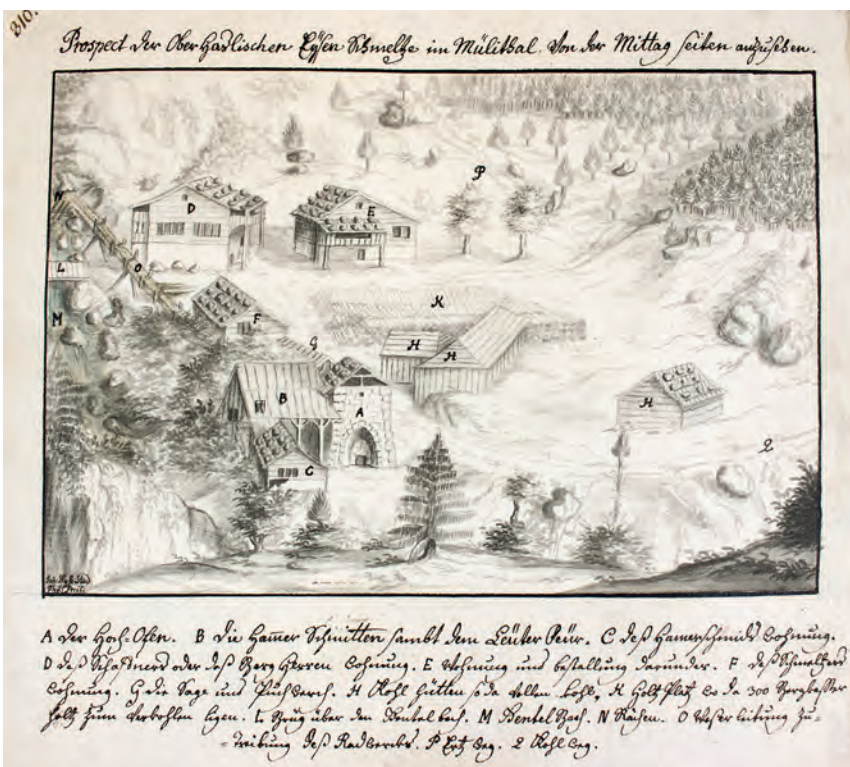 310.
Prospect der Ober Haslischen Eÿsen Schmeltze im Mülithal. Von der Mittag seiten anzusehen.
P
N
D
E
L
O
K
M
F
G
H
H
B
A
H
C
Q
A Der Hoch-Ofen. B Die Ham̄er Schmitten sambt dem Leüter Feür. C deß Hamerschmids Wohnung.
D deß Schafners oder deß Berg Herren Wohnung. E Wohnung und bestallung darunder. F deß Schmeltzers
Wohnung. G die Sage und Puchwerch. H Kohl hütten so da vollen Kohl, K Holtz Platz wo da 300
holtz zum verkohlen ligen. L Brüg über den Bentel bach. M Bentel Bach. N Rächen. O Waßer leitung zu-
=Treibung deß Radwercks. P Ertz weg. Q Kohl weg.